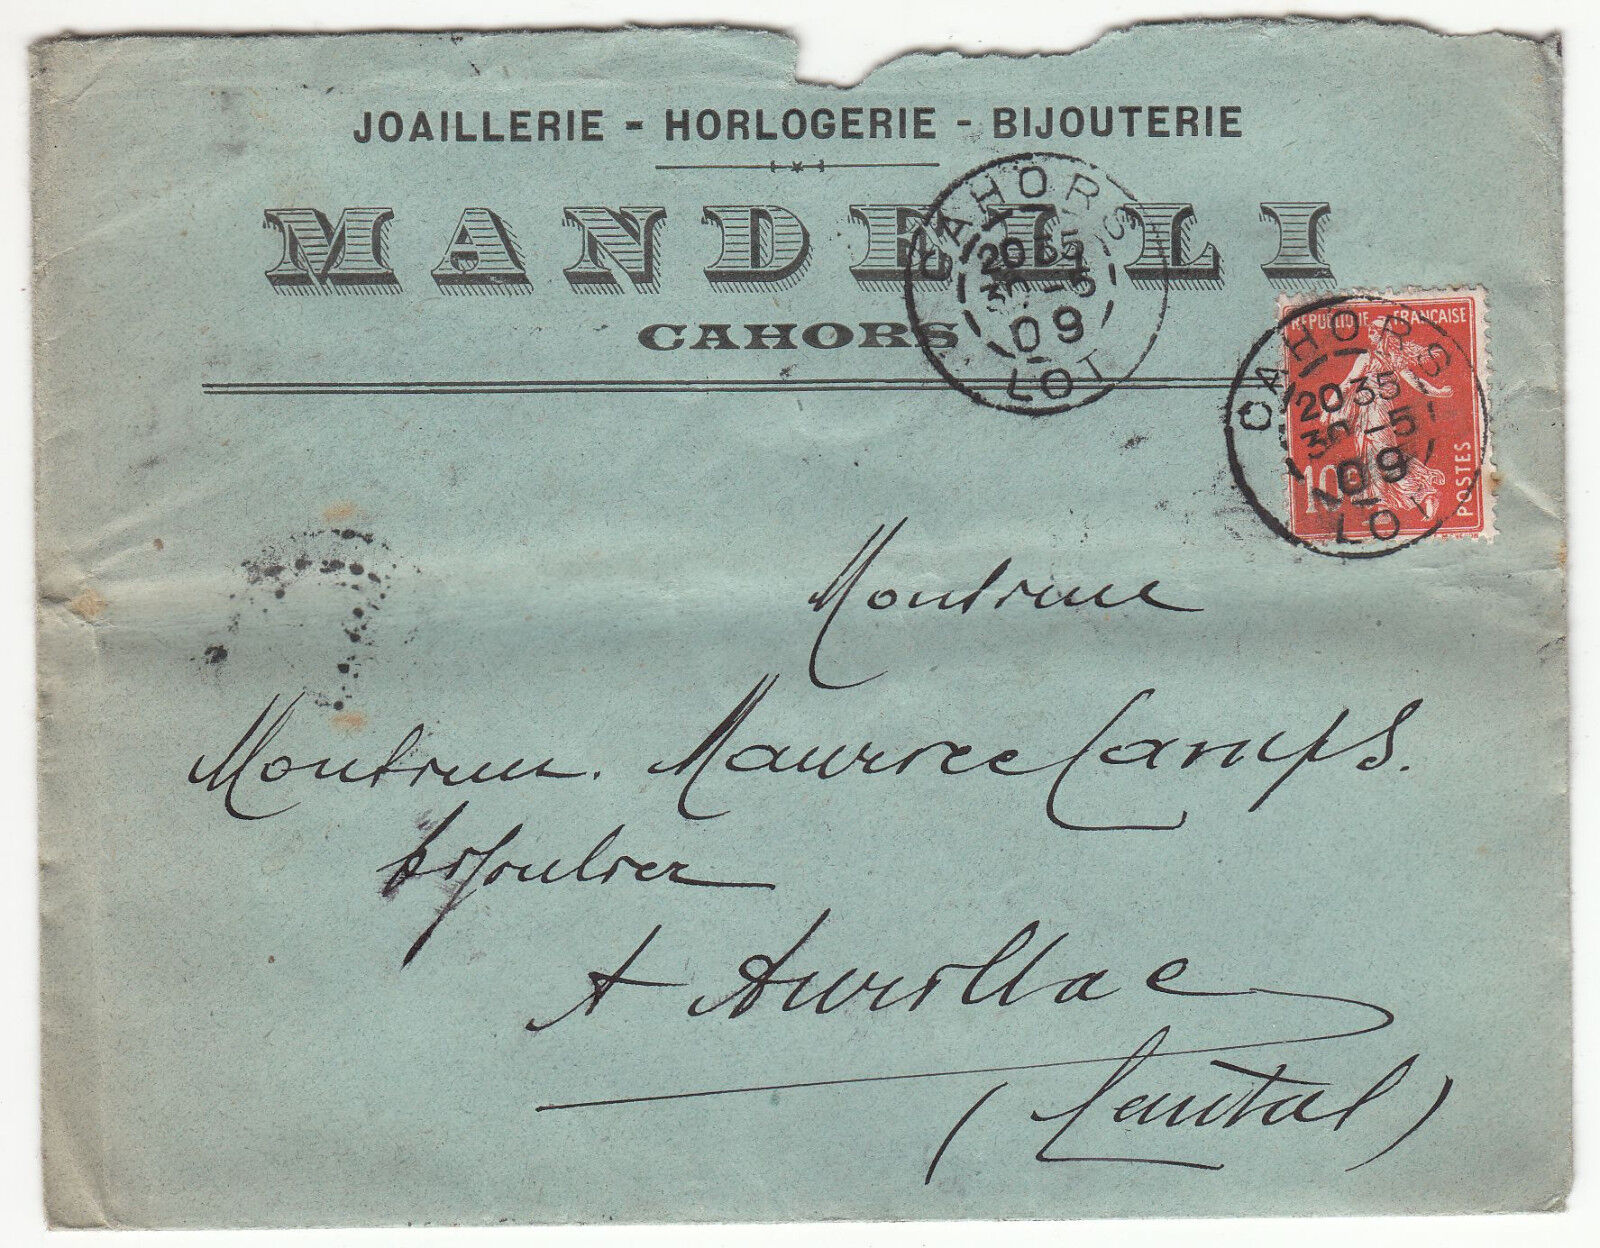 JOAILLERIE - HORLOGERIE - BIJOUTERIE
MANDELLI
CAHORS
CAHORS
20 35
30 -5
09
LOT
REPUBLIQUE FRANCAISE
10c
POSTES
CAHORS
20 35
30 -5
09
LOT
Monsieur
Monsieur. Maurice Camps.
bijoutier
A Aurillac
(Cantal)